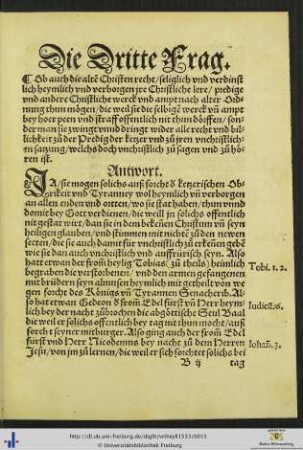 Die Dritte Frag.
Ob auch die altē Christen recht/ seliglich vnd verdinst
lich heymlich vnd verborgen jre Christliche lere/ predige
vnd andere Christliche werck vnd ampt nach alter Ord
nung thun mögen/ die weil sie die selbigē werck vñ ampt
bey hoer peen vnd straff offentlich nit thun dörffen/ son/
der man sie zwingt vnnd dringt wider alle recht vnd bil/
lichkeit zů der Predig der ketzer vnd zů jren vnchristlich/
en satzung/ welchs doch vnchristlich zů sagen vnd zů hö
ren ist.
Antwort.
JA/ sie mogen solichs auß forcht d ketzerischen Ob/
rigkeit vnd Tyranney wol heymlich vñ verborgen
an allen enden vnd ortten/ wo sie stat haben/ thun vnnd
domit bey Gott verdienen/ die weill jn solichs offentlich
nit gestat wirt/ dan sie in dem bekenen Christum vñ seyn
heiligen glauben/ vnd stimmen mit nichtē zů den newen
secten/ die sie auch damit für vnchristlich zů erkenē gebē
wie sie dan auch vnchristlich vnd auffrürisch seyn. Also
hatt etwan der from heylig Tobias (zů theils) heimlich
begraben die verstorbene/ vnd den armen gefangenen
mit brüdern seyn almusen heymlich mit getheilt von we
gen forcht des Königs vñ Tyrannen Senacherib. Al/
so hat etwan Gedeon d from Edel fürst vñ Herr heym/
lich bey der nacht zůbrochen die abgöttische Seul Baal
die weil er solichs offentlich bey tag nit thun mocht/ auß
forch t seyner mitburger. Also ging auch der from Edel
fürst vnd Herr Nicodemus bey nacht zů dem Herren
Jesu/ von jm zů lernen/ die weil er sich forchtet solichs bei
B ij tag
Tobi. 1. 2.
Iudicū.6.
Iohañ. 3.
http://dl.ub.uni-freiburg.de/diglit/vrthejl1533/0015
© Universitätsbibliothek Freiburg
Baden-Württemberg